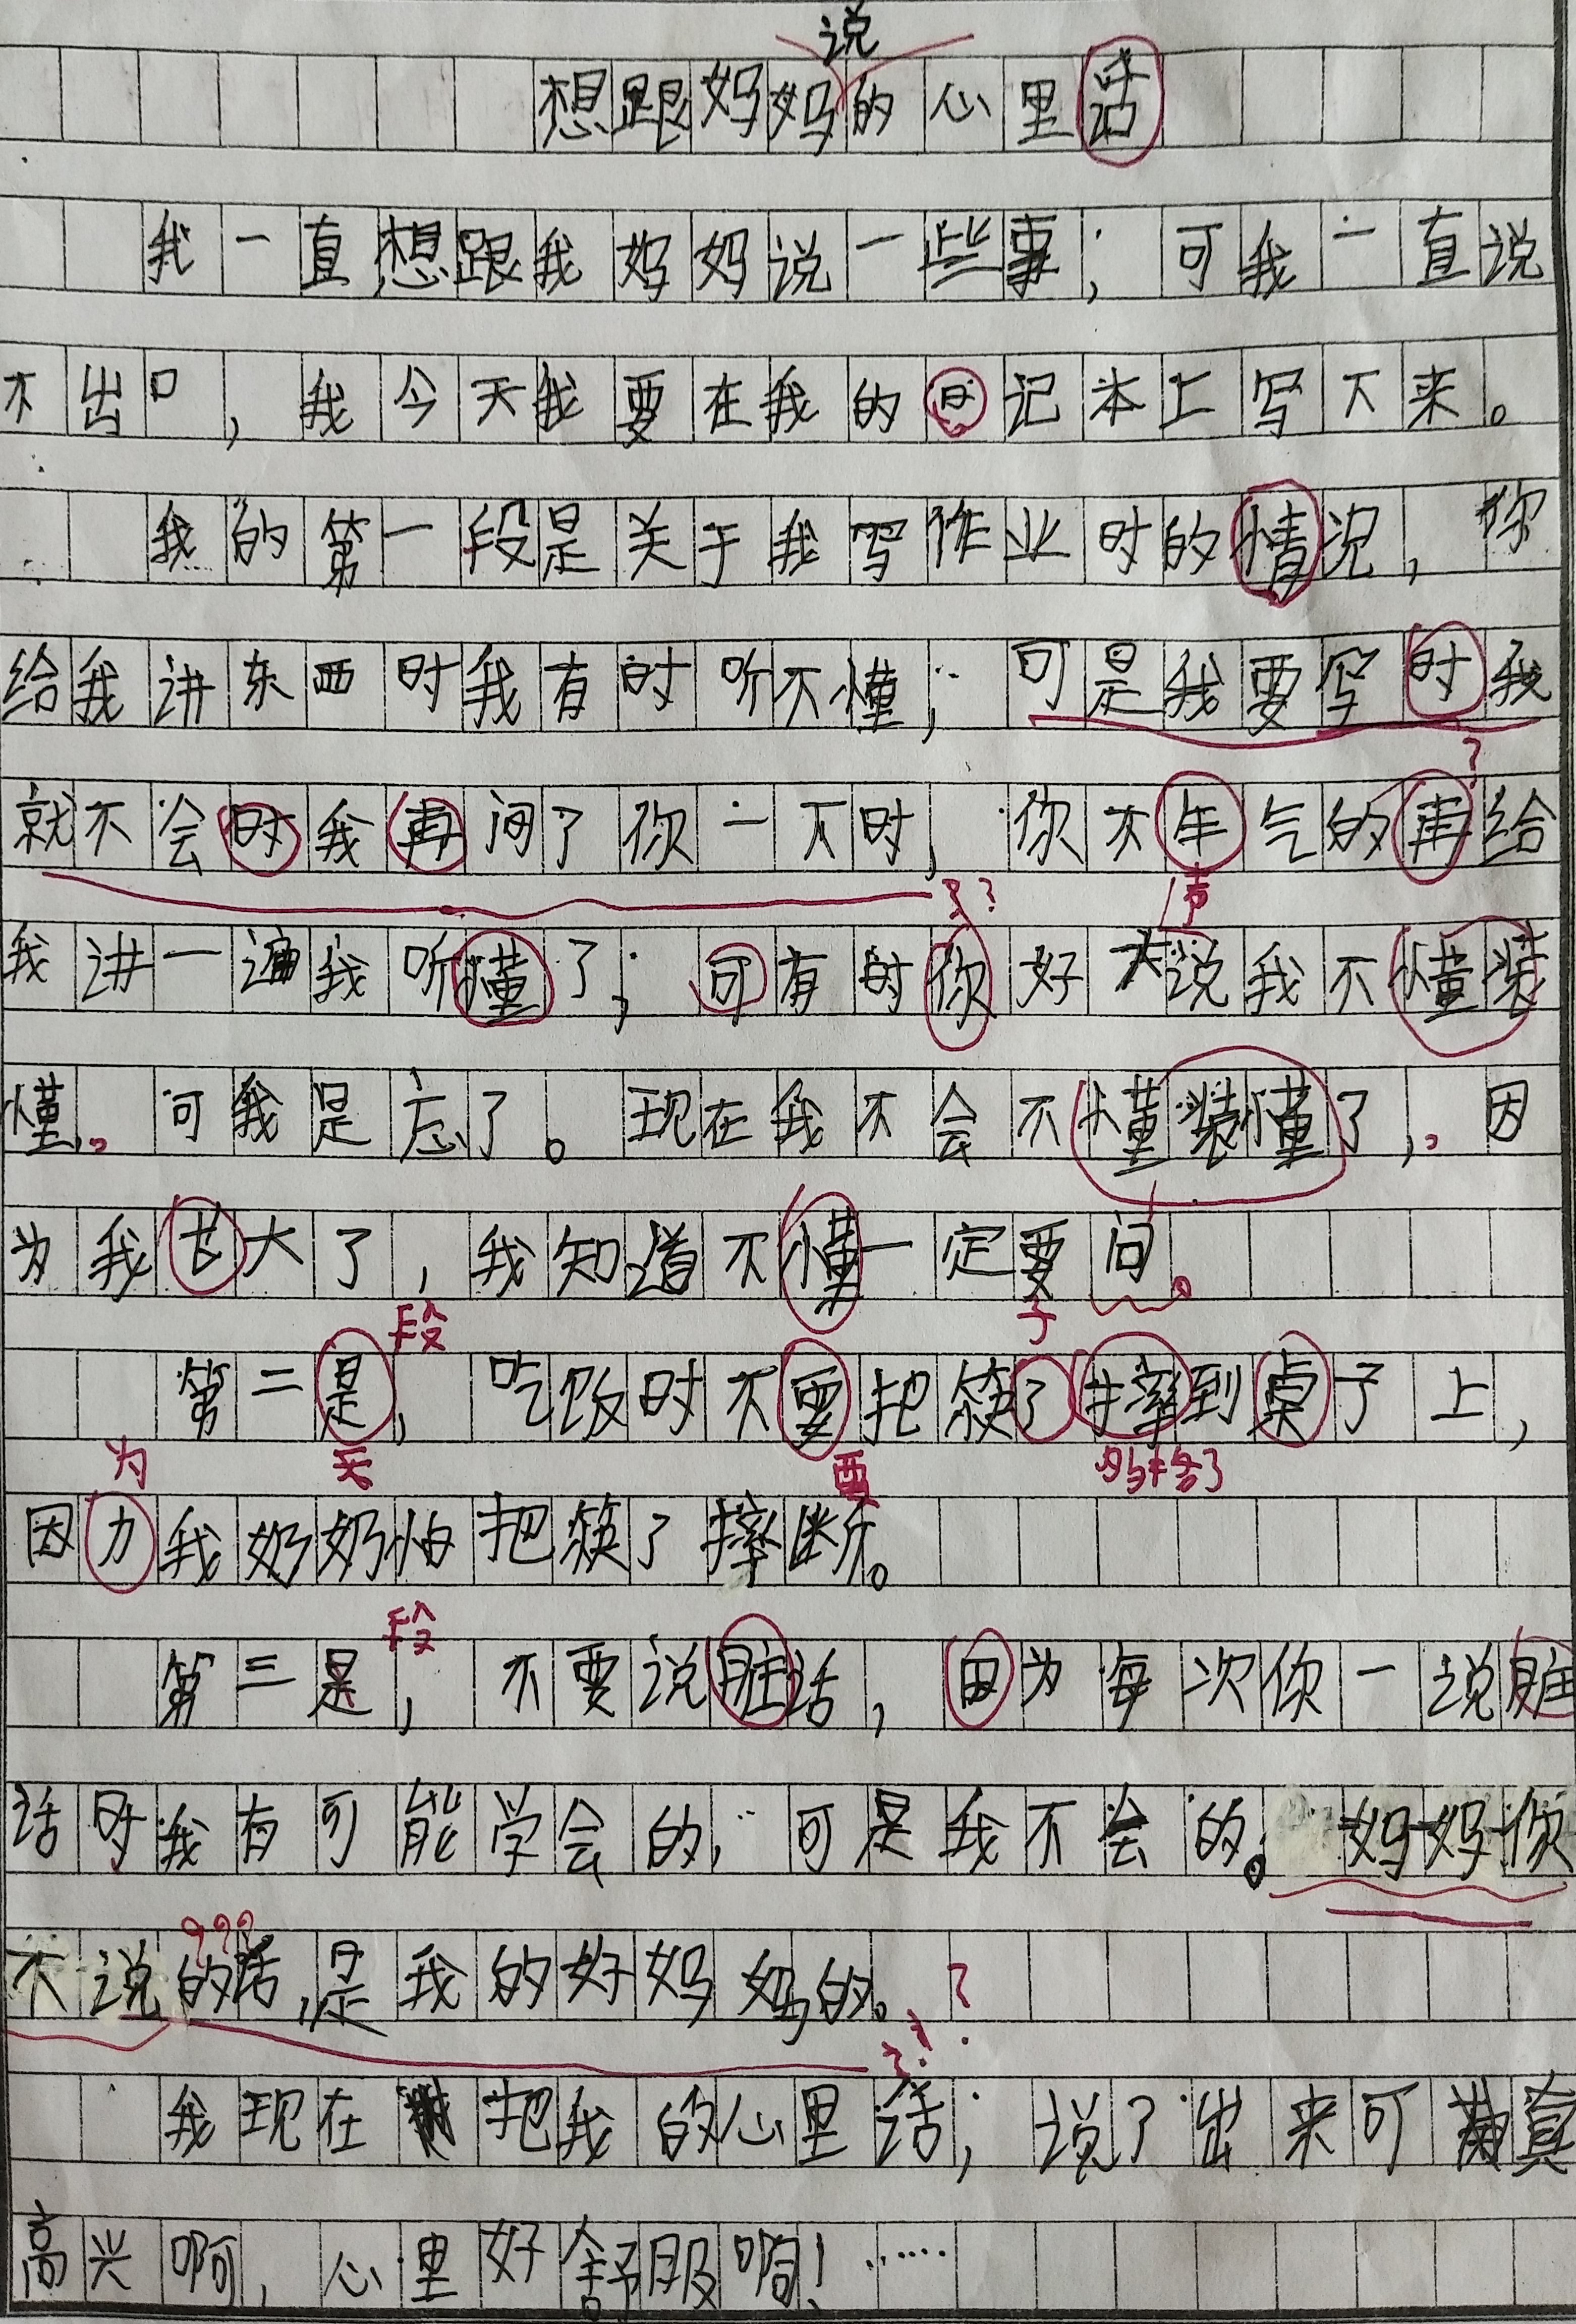 说
想跟妈妈的心里话
我一直想跟我妈妈说一些事，可我一直说
不出口，我今天我要在我的日记本上写下来。
我的第一段是关于我写作业时的情况，你
给我讲东西时我有时听不懂；可是我要写时我
？
就不会时我再问了你一下时，你不生气的再给
？？ 声
我讲一遍我听懂了；可有时你好大说我不懂装
懂。可我是忘了。现在我不会不懂装懂了，。因
为我长大了，我知道不懂一定要问。
段 子
第二是，吃饭时不要把筷了摔到桌子上，
为 要
因力我奶奶怕把筷了摔断。
段
第三是，不要说脏话，因为每次你一说脏
话时我有可能学会的，可是我不会的。妈妈你
？？？
不说的话，是我的好妈妈的。？
？？
我现在把我的心里话；说了出来可真
高兴啊，心里好舒服啊！……